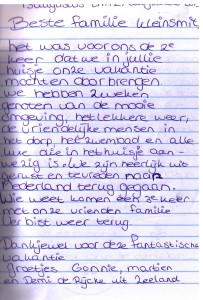 Beste familie Kleinsmit
het was voor ons de 2e
keer dat we in jullie
huisje onze vakantie
mochten door brengen
we hebben 2 weken
genoten van de mooie
omgeving, het lekkere weer,
de vriendelijke mensen in
het dorp, het zwembad en alle
luxe die in het huisje aan-
wezig is. We zijn heerlijk uit
gerust en tevreden naar
Nederland terug gegaan.
Wie weet komen we een 3e keer
met onze vrienden familie
ter biest weer terug.
Dankjewel voor deze fantastische
vakantie
groetjes Gonnie, martien
en Demi de Rijcke uit Zeeland